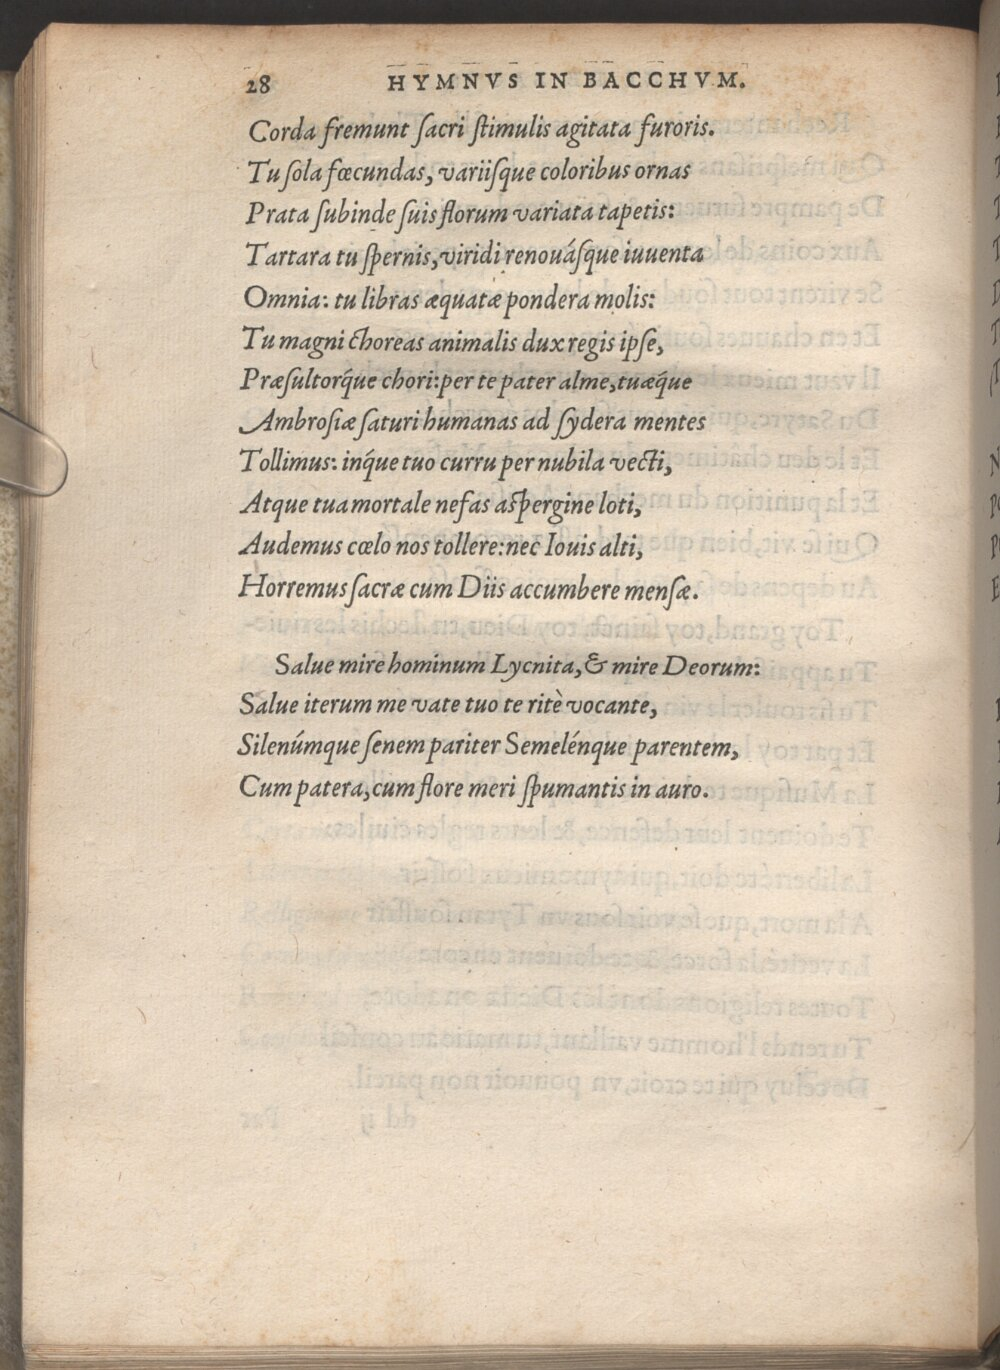 28 HYMNVS IN BACCHVM.
Corda fremunt ſacri ſtimulis agitata furoris.
Tu ſola fœcundas, variiſque coloribus ornas
Prata ſubinde ſuis florum variata tapetis:
Tartara tu ſpernis, viridi renouáſque iuuenta
Omnia: tu libras æquatæ pondera molis:
Tu magni choreas animalis dux regis ipſe,
Præſultorq́ue chori: per te pater alme, tuæq́ue
Ambroſiæ ſaturi humanas ad ſydera mentes
Tollimus: inq́ue tuo curru per nubila vecti,
Atque tua mortale nefas aſpergine loti,
Audemus cœlo nos tollere: nec Iouis alti,
Horremus ſacræ cum Diis accumbere menſæ.
Salue mire hominum Lycnita, & mire Deorum:
Salue iterum me vate tuo te ritè vocante,
Silenúmque ſenem pariter Semelénque parentem,
Cum patera, cum flore meri ſpumantis in auro.